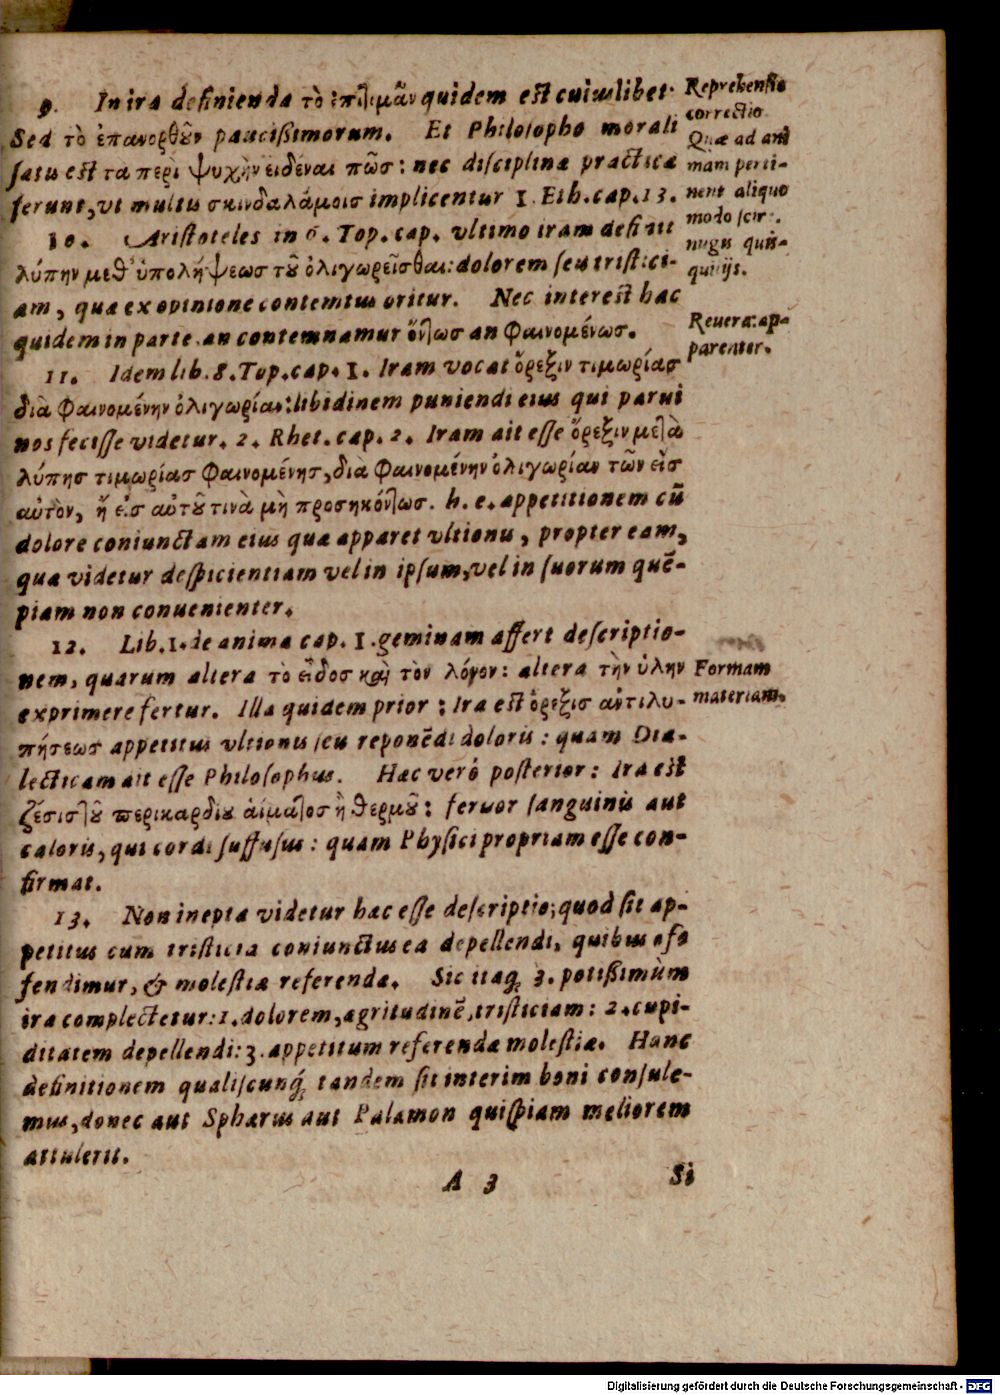 9. In ira definienda τὸ ἐπιτιμᾶν quidem est cuiuslibet.
Sed τὸ ἐπανορθοῦν paucißimorum. Et Philosopho morali
satis est τα περὶ ψυχὴν εἰδέναι πῶσ: nec disciplinæ practicæ
ferunt, vt multis σκινδαλάμοισ implicentur 1. Eth. cap. 13.
10. Aristoteles in 6. Top. cap. vltimo iram definiit
λύπην μεθ' ὑπολήψεωσ τοῦ ὀλιγωρεῖσθαι: dolorem seu tristici-
am, quæ ex opinione contemtus oritur. Nec interest hac
quidem in parte, an contemnamur ὄντωσ an φαινομένωσ.
11. Idem lib. 8. Top. cap. 1. Iram vocat ὄρεξιν τιμωρίασ
διὰ φαινομένην ὀλιγωρίαν: libidinem puniendi eius qui parui
nos fecisse videtur. 2. Rhet. cap. 2. Iram ait esse ὄρεξιν μετὰ
λύπησ τιμωρίασ φαινομένησ, διὰ φαινομένην ὀλιγωρίαν τῶν εἰσ
αὐτὸν, ἢ εἰσ αὐτοῦ τινὰ μὴ προσηκόντωσ. h. e. appetitionem cũ
dolore coniunctam eius quæ apparet vltionis, propter eam,
quæ videtur despicientiam vel in ipsum, vel in suorum quẽ-
piam non conuenienter.
12. Lib. 1. de anima cap. 1. geminam affert descriptio-
nem, quarum altera τὸ εἶδοσ καὶ τὸν λόγον: altera τὴν ὑλην
exprimere fertur. Illa quidem prior: Ira est ὄρεξισ ἀντιλυ-
πήσεωσ appetitus vltionis seu reponẽdi doloris: quam Dia-
lecticam ait esse Philosophus. Hæc verò posterior: Ira est
ζέσισ τοῦ περικαρδίου αἱματοσ ἢ θερμοῦ: feruor sanguinis aut
caloris, qui cordi suffusus: quam Physici propriam esse con-
firmat.
13. Non inepta videtur hæc esse descriptio; quod sit ap-
petitus cum tristicia coniunctus ea depellendi, quibus of-
fendimur, & molestiæ referendæ. Sic itaq; 3. potißimùm
ira complectetur: 1. dolorem, ægritudinẽ, tristiciam: 2. cupi-
ditatem depellendi: 3. appetitum referendæ molestiæ. Hanc
definitionem qualiscunq́; tandem sit interim boni consule-
mus, donec aut Sphærus aut Palæmon quispiam meliorem
attulerit.
A 3 Si
Reprehensio
correctio.
Quæ ad ani
mam perti-
nent aliquo
modo scire.
nugis quis-
quiliis.
Reuera: ap-
parenter.
Formam
materiam.
Digitalisierung gefördert durch die Deutsche Forschungsgemeinschaft - DFG